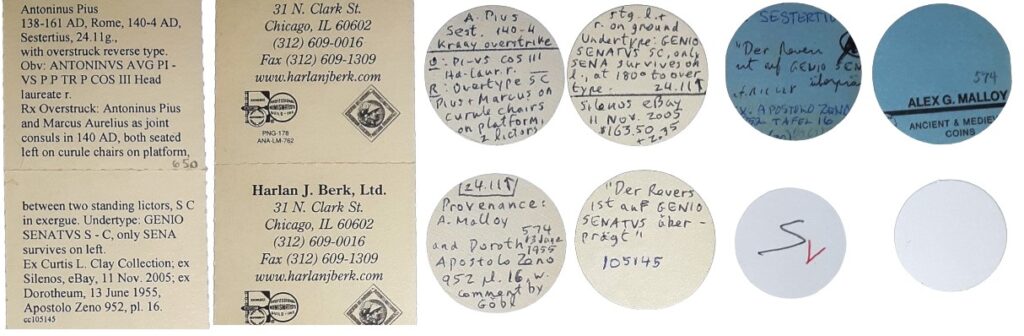 Antoninus Pius
138-161 AD, Rome, 140-4 AD,
Sestertius, 24.11g.,
with overstruck reverse type.
Obv: ANTONINVS AVG PI -
VS P P TR P COS III Head
laureate r.
Rx Overstruck: Antoninus Pius
and Marcus Aurelius as joint
consuls in 140 AD, both seated
left on curule chairs on platform,
650
between two standing lictors, S C
in exergue. Undertype: GENIO
SENATVS S - C, only SENA
survives on left.
Ex Curtis L. Clay Collection; ex
Silenos, eBay, 11 Nov. 2005; ex
Dorotheum, 13 June 1955,
Apostolo Zeno 952, pl. 16.
cc105145
31 N. Clark St.
Chicago, IL 60602
(312) 609-0016
Fax (312) 609-1309
www.harlanjberk.com
PROFESSIONAL
NUMISMATISTS
PNG-178
ANA-LM-762
Harlan J. Berk, Ltd.
31 N. Clark St.
Chicago, IL 60602
(312) 609-0016
Fax (312) 609-1309
www.harlanjberk.com
PROFESSIONAL
NUMISMATISTS
A. Pius
Sest. 140-4
Krazy overstrike
O: PI-VS COS III
Hd. laur. r.
R: Overtype SC
Pius + Marcus on
curule chairs
on platform,
2 lictors
stg. l. +
r. on ground
Undertype: GENIO
SENATVS SC, only
SENA survives on
l., at 180° to over
type. 24.11↑
Silenos eBay
11 Nov. 2005
$163.50
SESTERTIU
"Der Revers
ist auf GENIO SEN
APOSTOLO ZENO
952 TAFEL 16
574
ALEX G. MALLOY
ANCIENT & MEDIEV
COINS
24.11↑
Provenance:
A. Malloy
574
and Doroth 13 June
1955
Apostolo Zeno
952 pl. 16, w.
comment by
Göbl
"Der Revers
ist auf GENIO
SENATVS über-
prägt"
105145
S
V